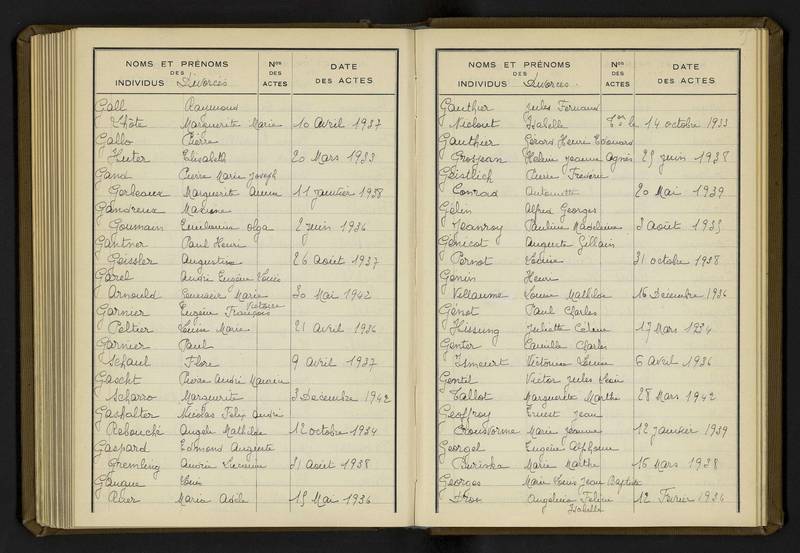 NOMS ET PRÉNOMS DES INDIVIDUS Divorcés Nos DES ACTES DATE DES ACTES
Gall Raymond
Lhôte Marguerite Marie 10 Avril 1937
Gallo Pierre
Huter Elisabeth 20 Mars 1933
Gand Pierre Marie Joseph
Gerbeaux Marguerite 11 janvier 1938
Gandreux Maxime
Goumain Emilienne Olga 2 juin 1936
Gantner Paul Henri
Geissler Augustine 26 Août 1937
Garel André Eugène Louis
Arnould Marie Victoire 30 Mai 1942
Garnier Eugène François
Peltier Louise Marie 21 Avril 1936
Garnier Paul
Schaul Flore 9 Avril 1937
Gascht Pierre André
Scharro Marguerite 3 Décembre 1942
Gashalter Nicolas Félix André
Rebouché Angèle Mathilde 12 octobre 1934
Gaspard Edmond Auguste
Gremling Andrée Lucienne 31 Août 1938
Gauque Louis
Maria Adèle 15 Mai 1936
NOMS ET PRÉNOMS DES INDIVIDUS Divorcés. Nos DES ACTES DATE DES ACTES
Gauthier Jules Fernand
Niclout Isabelle 14 octobre 1933
Gauthier Gérard Henri Edouard
Grosjean Hélène Jeanne Agnès 25 juin 1938
Geistlich Pierre Frédéric
Conrad Antoinette 20 Mai 1939
Gélin Alfred Georges
Jeanroy Pauline Madeleine 3 Août 1935
Génicot Auguste Gillain
Pernot Louise 31 octobre 1938
Genin Henri
Villaume Louise Mathilde 16 Décembre 1936
Génot Paul Charles
Hissung Juliette 17 Mars 1934
Genter Camille Charles
Ismeurt Victorine Louise 6 Avril 1936
Gentil Victor Jules
Tallot Marguerite Marthe 28 Mars 1942
Geoffroy Ernest Jean
Marie Jeanne 12 janvier 1939
Georgel Eugène Alphonse
Buriska Marie Marthe 16 Mars 1938
Georges Marie Louis Jean Baptiste
Angelina Féline Isabelle 12 Février 1936